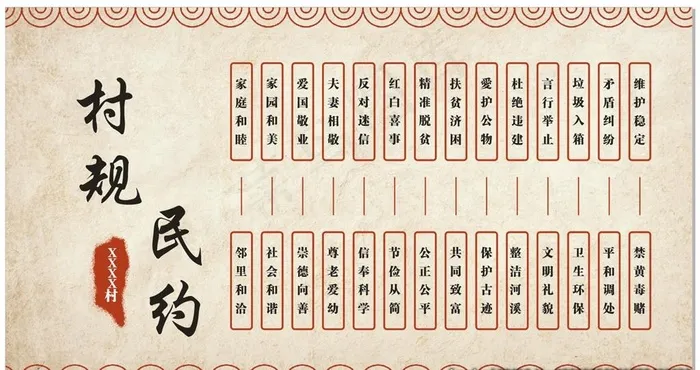 村规
民约
XXXX村
家庭和睦
邻里和洽
家园和美
社会和谐
爱国敬业
崇德向善
夫妻相敬
尊老爱幼
反对迷信
信奉科学
红白喜事
节俭从简
精准脱贫
公正公平
扶贫济困
共同致富
爱护公物
保护古迹
杜绝违建
整洁河溪
言行举止
文明礼貌
垃圾入箱
卫生环保
矛盾纠纷
平和调处
维护稳定
禁黄毒赌